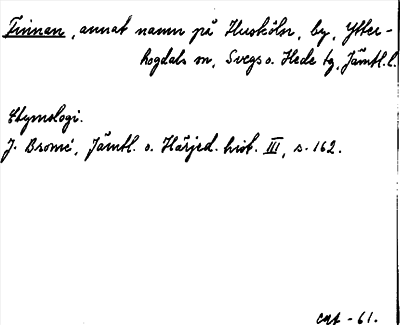 Finnan, annat namn på Huskölen, by, Ytter-
hogdals sn, Svegs o. Hede tg, Jämtl. l.
Etymologi.
J. Bromé, Jämtl. o. Härjed. hist. III, s. 162.
-61.